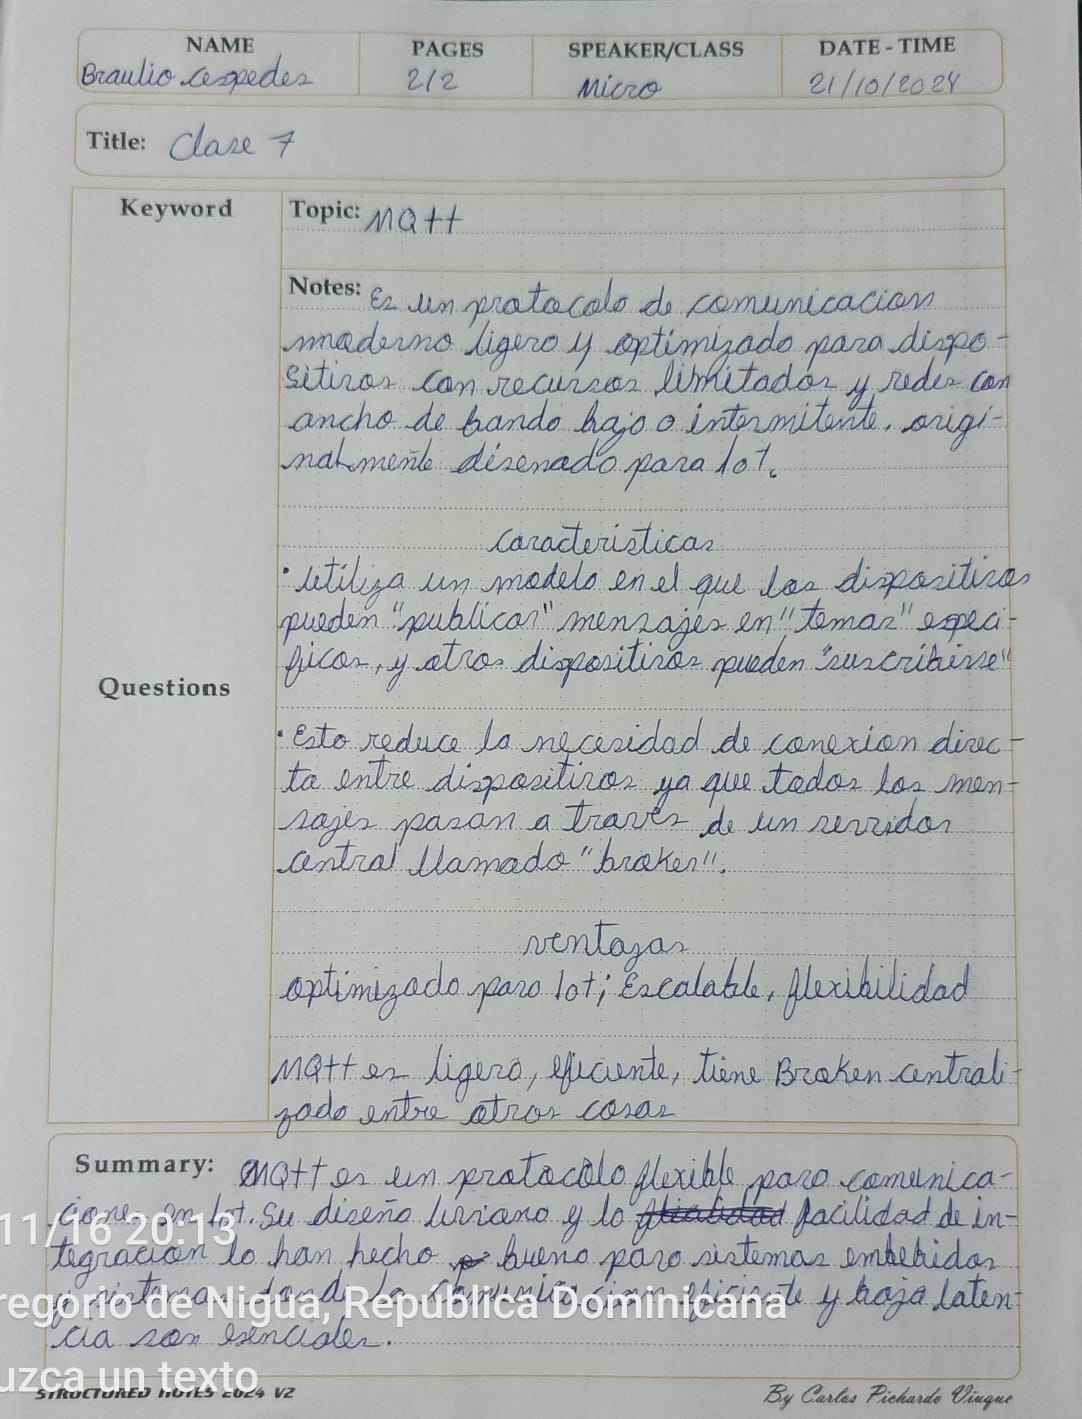 NAME PAGES SPEAKER/CLASS DATE - TIME
Braulio Cespedes 2/2 Micro 21/10/2024
Title: Clase 7
Keyword
Topic: MQtt
Notes: Es un protocolo de comunicacion
moderno ligero y optimizado para dispo-
sitivos con recursos limitados y redes con
ancho de banda bajo o intermitente. origi-
nalmente disenado para Iot.
caracteristicas
• Utiliza un modelo en el que los dispositivos
pueden "publicar" mensajes en "temas" especi-
ficos, y otros dispositivos pueden "suscribirse"
Questions
• Esto reduce la necesidad de conexion direc-
ta entre dispositivos ya que todos los men-
sajes pasan a través de un servidor
central llamado "broker".
ventajas
optimizado para Iot; Escalable, flexibilidad
MQtt es ligero, eficiente, tiene Broken centrali-
zado entre otros cosas
Summary: MQtt es un protocolo flexible para comunica-
ciones en Iot. Su diseño liviano y lo facilidad de in-
11/16 20:13
tegracion lo han hecho bueno para sistemas embebidos
y sistemas donde la comunicacion eficiente y baja laten-
regorio de Nigua, República Dominicana
cia son esenciales.
uzca un texto
STRUCTURED NOTES 2024 V2 By Carlos Pichardo Viuque